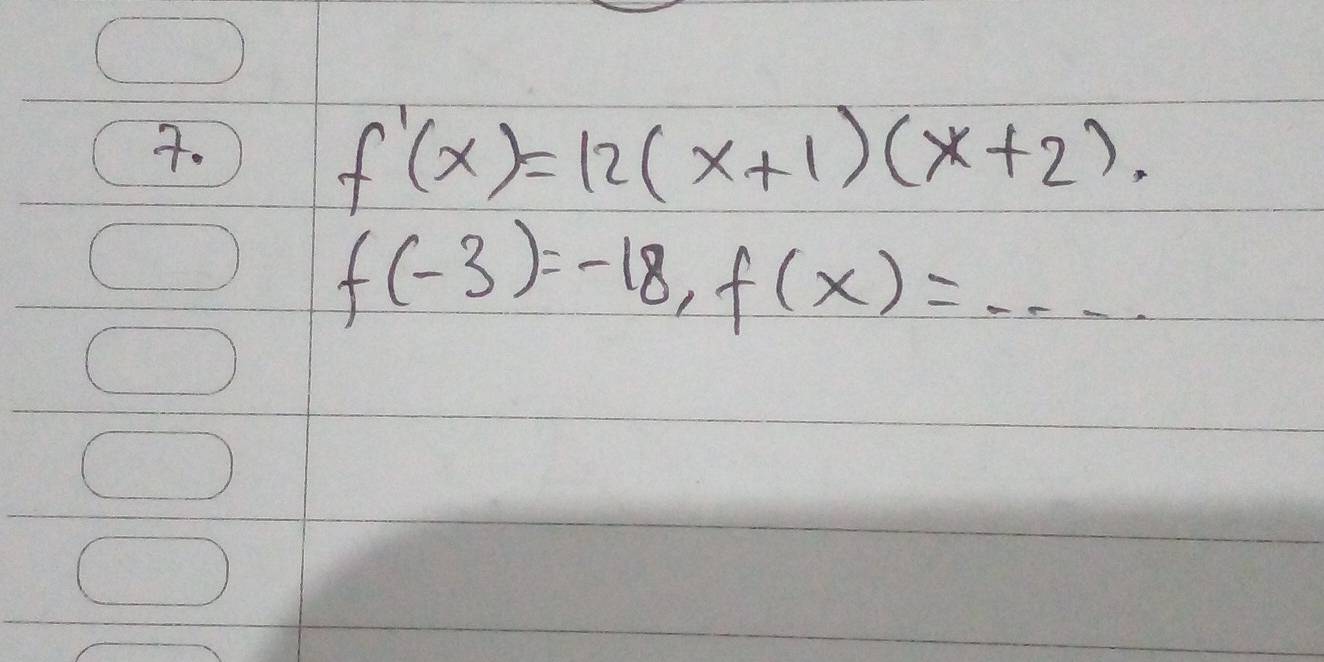 7. f'(x)=12(x+1)(x+2).
f(-3)=-18, f(x)=....